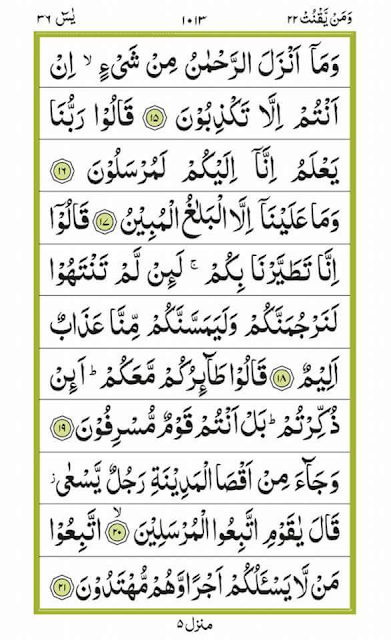 وَمَنْ يَّقْنُتْ ٢٢ ١٠١٣ يٰسٓ ٣٦
وَمَاۤ اَنْزَلَ الرَّحْمٰنُ مِنْ شَیْءٍ ۙ اِنْ
اَنْتُمْ اِلَّا تَكْذِبُوْنَ ١٥ قَالُوْا رَبُّنَا
یَعْلَمُ اِنَّاۤ اِلَیْكُمْ لَمُرْسَلُوْنَ ١٦
وَمَا عَلَیْنَاۤ اِلَّا الْبَلٰغُ الْمُبِیْنُ ١٧ قَالُوْۤا
اِنَّا تَطَیَّرْنَا بِكُمْ ۚ لَىِٕنْ لَّمْ تَنْتَهُوْا
لَنَرْجُمَنَّكُمْ وَلَیَمَسَّنَّكُمْ مِّنَّا عَذَابٌ
اَلِیْمٌ ١٨ قَالُوْا طَآىِٕرُكُمْ مَّعَكُمْ ؕ اَىِٕنْ
ذُكِّرْتُمْ ؕ بَلْ اَنْتُمْ قَوْمٌ مُّسْرِفُوْنَ ١٩
وَجَآءَ مِنْ اَقْصَا الْمَدِیْنَةِ رَجُلٌ یَّسْعٰی ؗ
قَالَ یٰقَوْمِ اتَّبِعُوا الْمُرْسَلِیْنَ ۙ ٢٠ اتَّبِعُوْا
مَنْ لَّا یَسْـَٔلُكُمْ اَجْرًا وَّهُمْ مُّهْتَدُوْنَ ٢١
منزل ٥